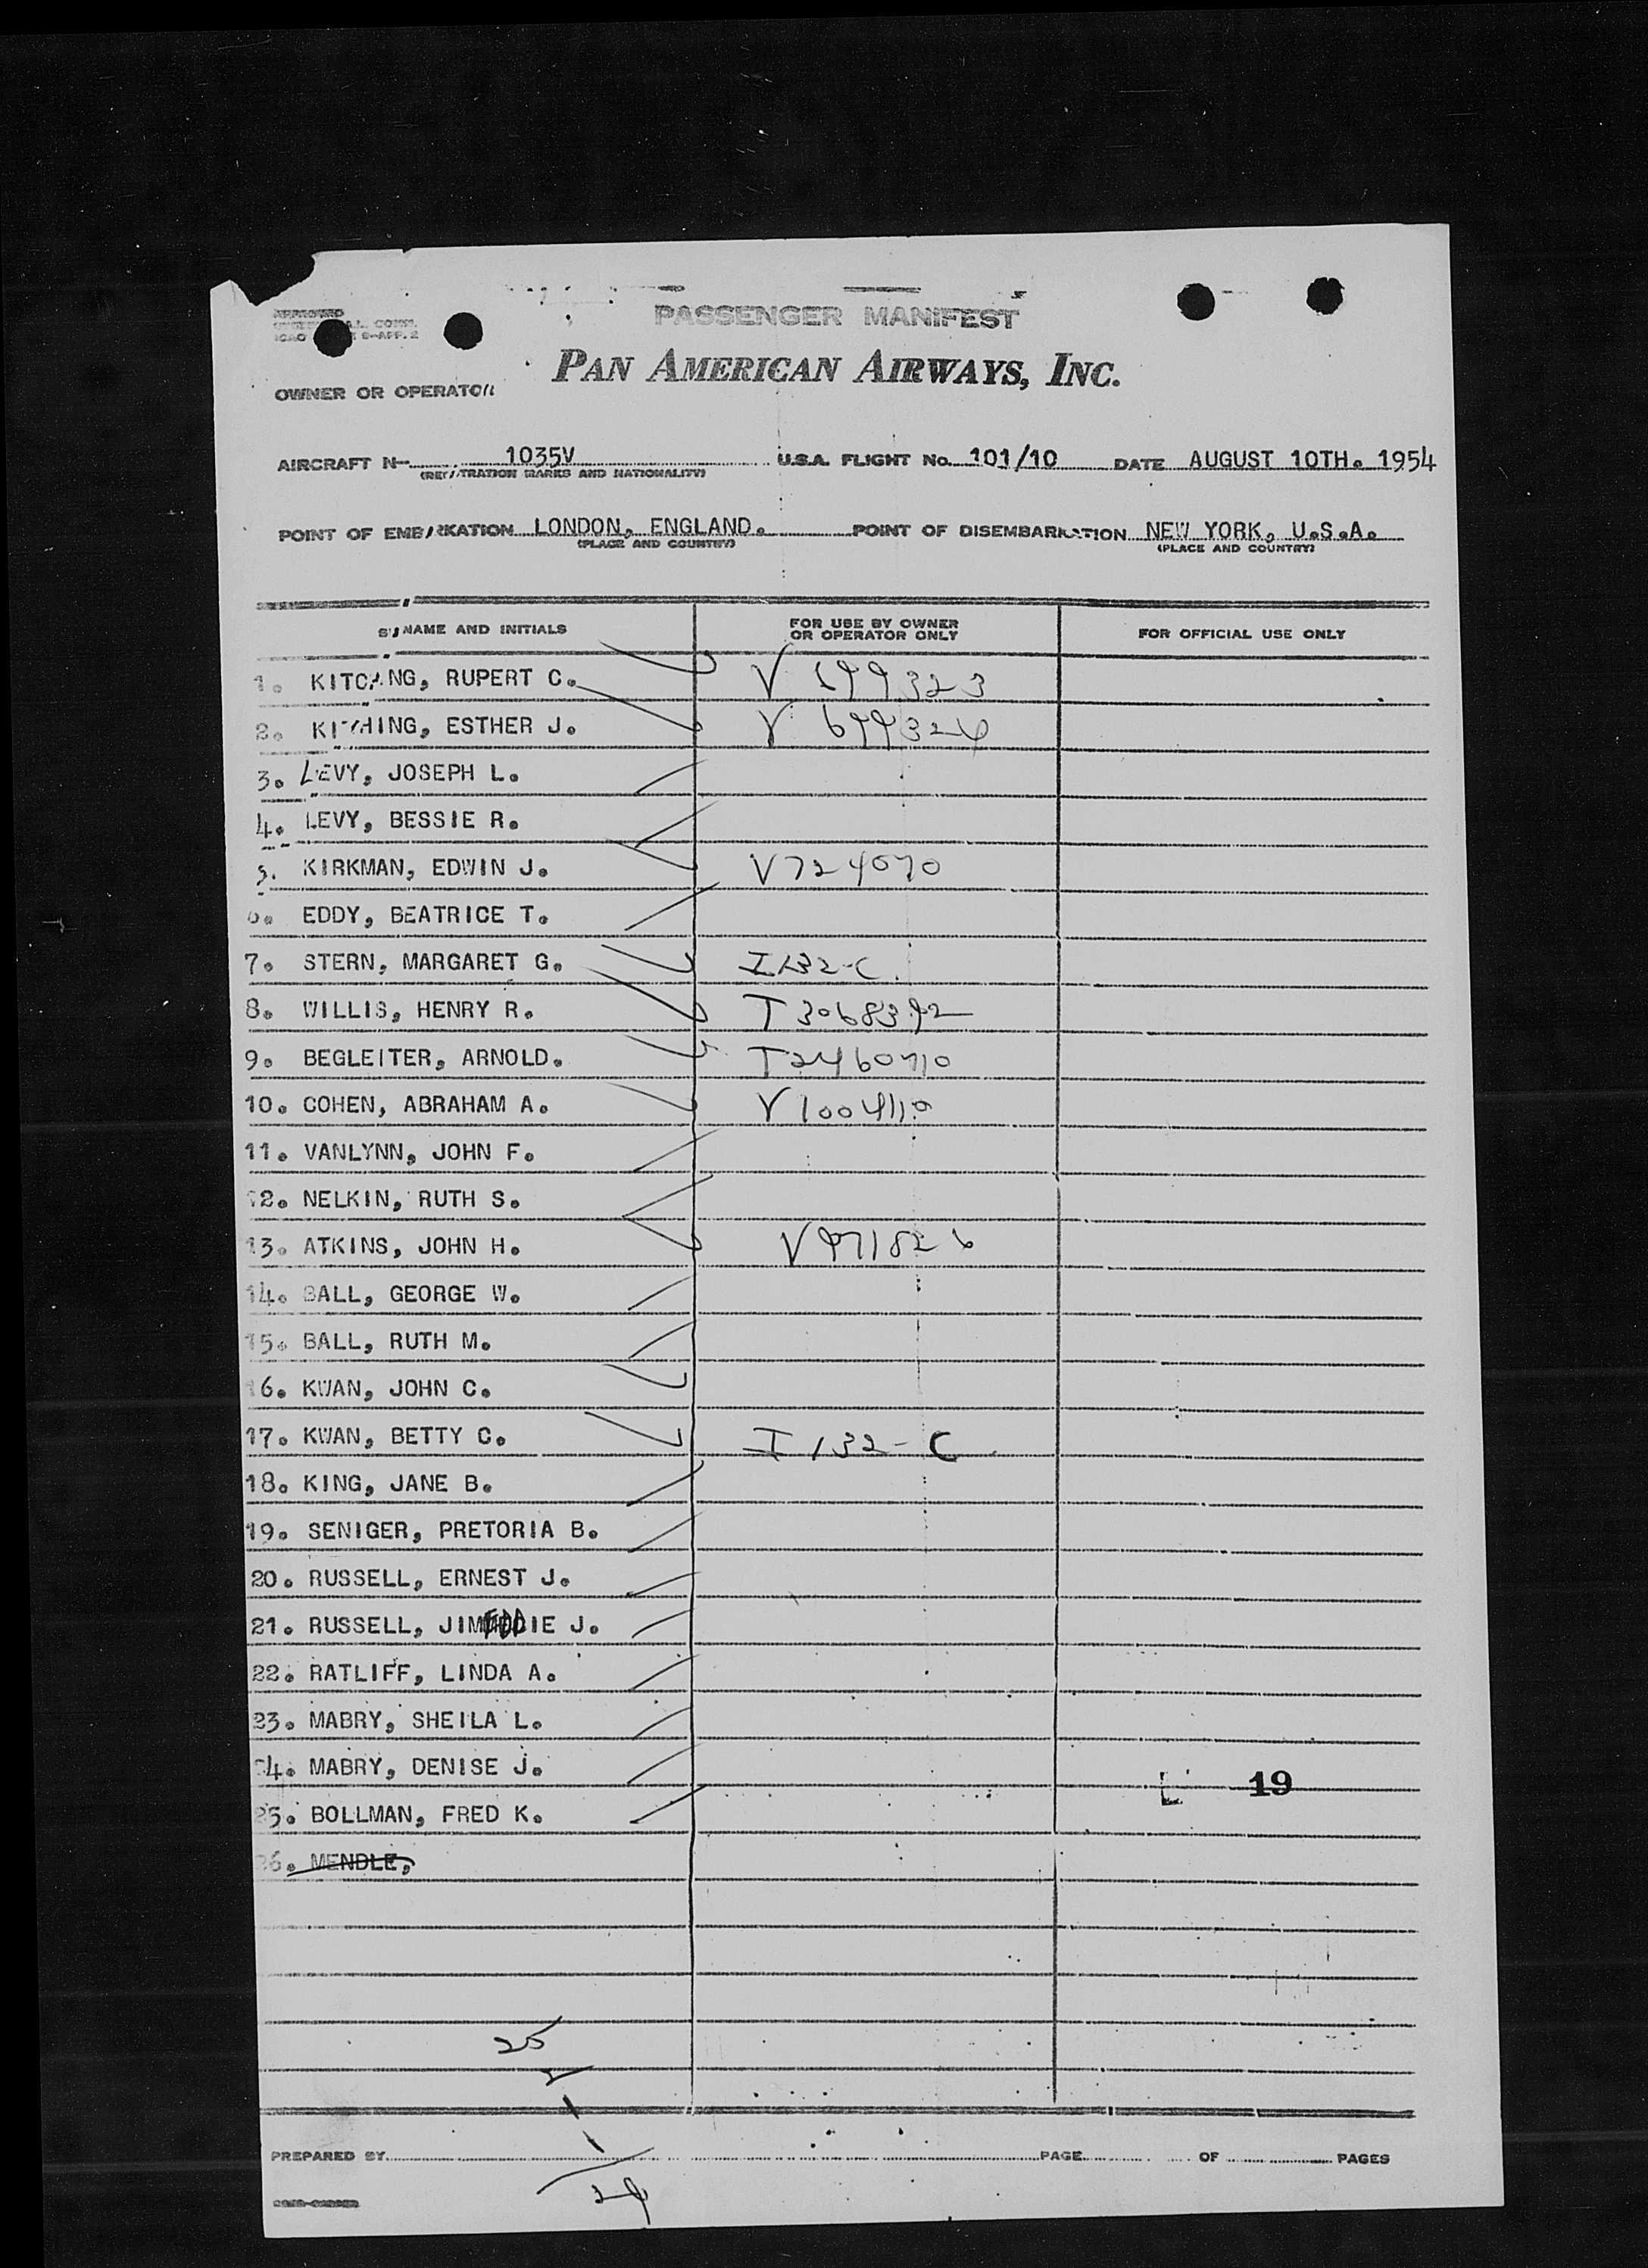 PASSENGER MANIFEST
PAN AMERICAN AIRWAYS, INC.
OWNER OR OPERATOR
AIRCRAFT N 1035V U.S.A. FLIGHT No. 101/10 DATE AUGUST 10TH. 1954
(REGISTRATION MARKS AND NATIONALITY)
POINT OF EMBARKATION LONDON, ENGLAND. POINT OF DISEMBARKATION NEW YORK, U.S.A.
(PLACE AND COUNTRY) (PLACE AND COUNTRY)
SURNAME AND INITIALS FOR USE BY OWNER OR OPERATOR ONLY FOR OFFICIAL USE ONLY
1. KITCHING, RUPERT C. V 699323
2. KITCHING, ESTHER J. V 699324
3. LEVY, JOSEPH L.
4. LEVY, BESSIE R.
5. KIRKMAN, EDWIN J. V724070
6. EDDY, BEATRICE T.
7. STERN, MARGARET G. I 132-C
8. WILLIS, HENRY R. T3068392
9. BEGLEITER, ARNOLD. T2460710
10. COHEN, ABRAHAM A. V1004110
11. VANLYNN, JOHN F.
12. NELKIN, RUTH S.
13. ATKINS, JOHN H. V971826
14. BALL, GEORGE W.
15. BALL, RUTH M.
16. KWAN, JOHN C.
17. KWAN, BETTY C. I 132-C
18. KING, JANE B.
19. SENIGER, PRETORIA B.
20. RUSSELL, ERNEST J.
21. RUSSELL, J.
22. RATLIFF, LINDA A.
23. MABRY, SHEILA L.
24. MABRY, DENISE J.
19
25. BOLLMAN, FRED K.
26. MENDLE,
25
PREPARED BY PAGE OF PAGES
29